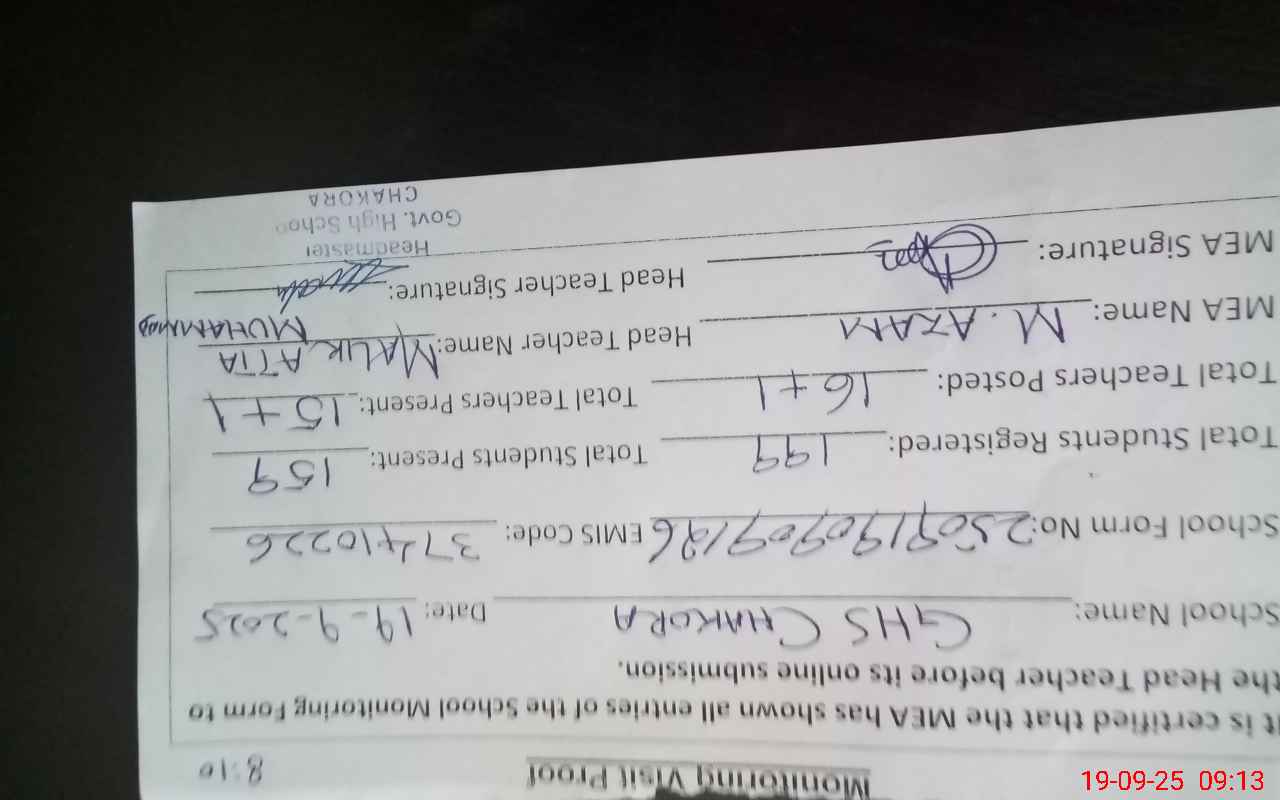 Monitoring Visit Proof 8:10
It is certified that the MEA has shown all entries of the School Monitoring Form to
the Head Teacher before its online submission.
School Name: GHS CHAKORA Date: 19-9-2025
School Form No: 250919090909196 EMIS Code: 37410226
Total Students Registered: 199 Total Students Present: 159
Total Teachers Posted: 16+1 Total Teachers Present: 15+1
MEA Name: M. AZAM Head Teacher Name: MALIK ATTA MUHAMMAD
MEA Signature: Head Teacher Signature:
Headmaster
Govt. High School
CHAKORA
19-09-25 09:13